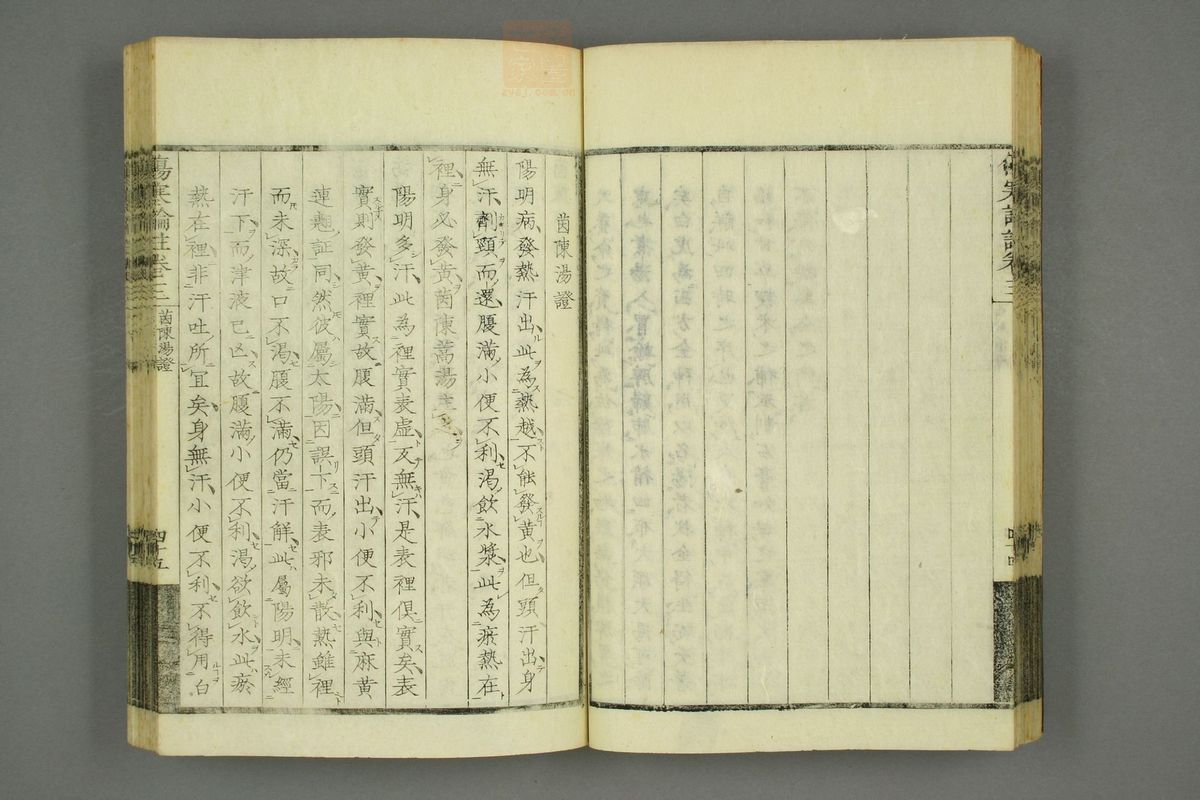 茵陳湯證
陽明病發熱汗出此為熱越不能發黃也但頭汗出身
無汗劑頸而還腹滿小便不利渴飲水漿此為瘀熱在
裡身必發黃茵陳蒿湯主之
陽明多汗此為裡實表虛反無汗是表裡俱實矣表
實則發黃裡實故腹滿但頭汗出小便不利與麻黃
連翹証同然彼屬太陽因誤下而表邪未散熱雖裡
而未深故口不渴腹不滿仍當汗解此屬陽明未經
汗下而津液已亾故腹滿小便不利渴欲飲水此瘀
熱在裡非汗吐所宜矣身無汗小便不利不得用白
傷寒論註卷三
茵陳湯證
四十五